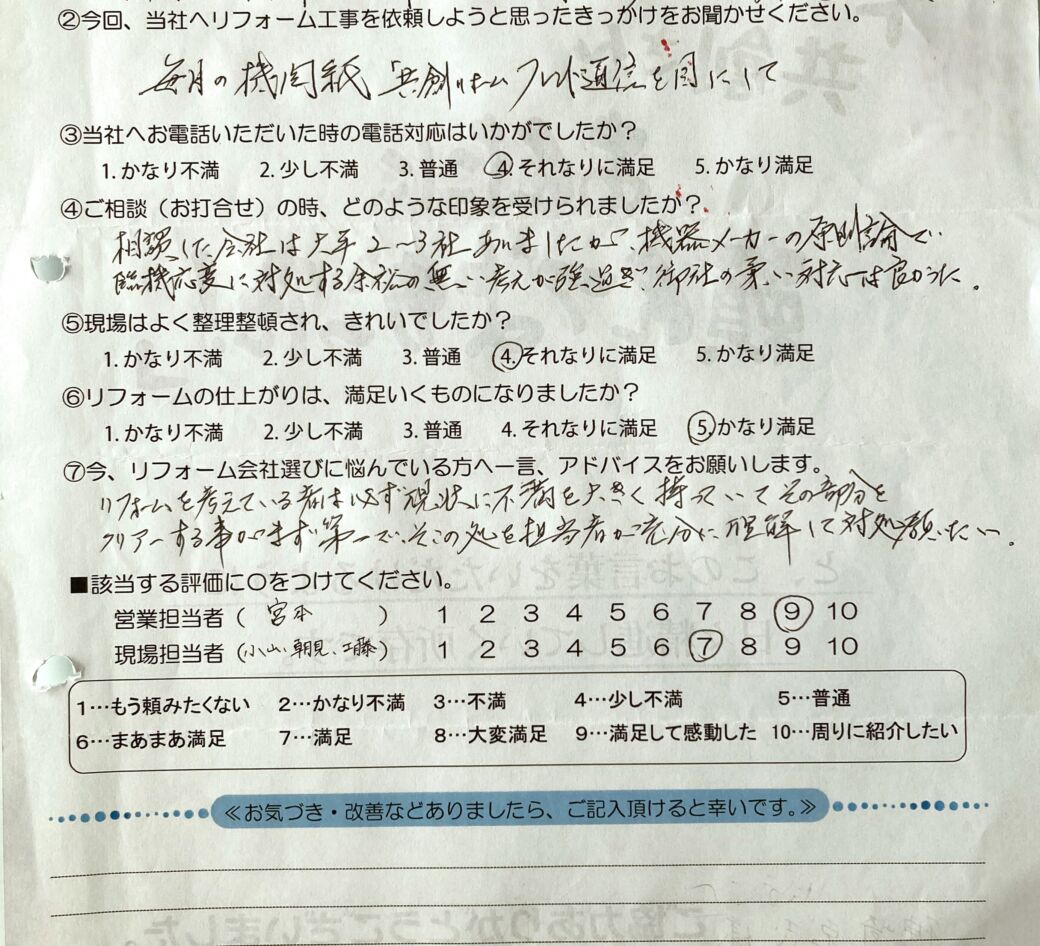 ②今回、当社へリフォーム工事を依頼しようと思ったきっかけをお聞かせください。
毎月の機関紙「共創リホームフレンド通信を目にして
③当社へお電話いただいた時の電話対応はいかがでしたか？
1. かなり不満 2. 少し不満 3. 普通 4. それなりに満足 5. かなり満足
④ご相談（お打合せ）の時、どのような印象を受けられましたか？
相談した会社は大手2〜3社ありましたが、機器メーカーの原則論で
臨機応変に対処する余裕の無い考えが強過ぎ、御社の柔い対応は良かった。
⑤現場はよく整理整頓され、きれいでしたか？
1. かなり不満 2. 少し不満 3. 普通 4. それなりに満足 5. かなり満足
⑥リフォームの仕上がりは、満足いくものになりましたか？
1. かなり不満 2. 少し不満 3. 普通 4. それなりに満足 5. かなり満足
⑦今、リフォーム会社選びに悩んでいる方へ一言、アドバイスをお願いします。
リフォームを考えている者は必ず現状に不満を大きく持っていてその部分を
クリアーする事がまず第一で、そこの処を担当者が充分に理解して対処願いたい。
■該当する評価に〇をつけてください。
営業担当者（ 宮本 ） 1 2 3 4 5 6 7 8 9 10
現場担当者（小山、朝見、工藤） 1 2 3 4 5 6 7 8 9 10
1…もう頼みたくない 2…かなり不満 3…不満 4…少し不満 5…普通
6…まあまあ満足 7…満足 8…大変満足 9…満足して感動した 10…周りに紹介したい
≪お気づき・改善などありましたら、ご記入頂けると幸いです。≫